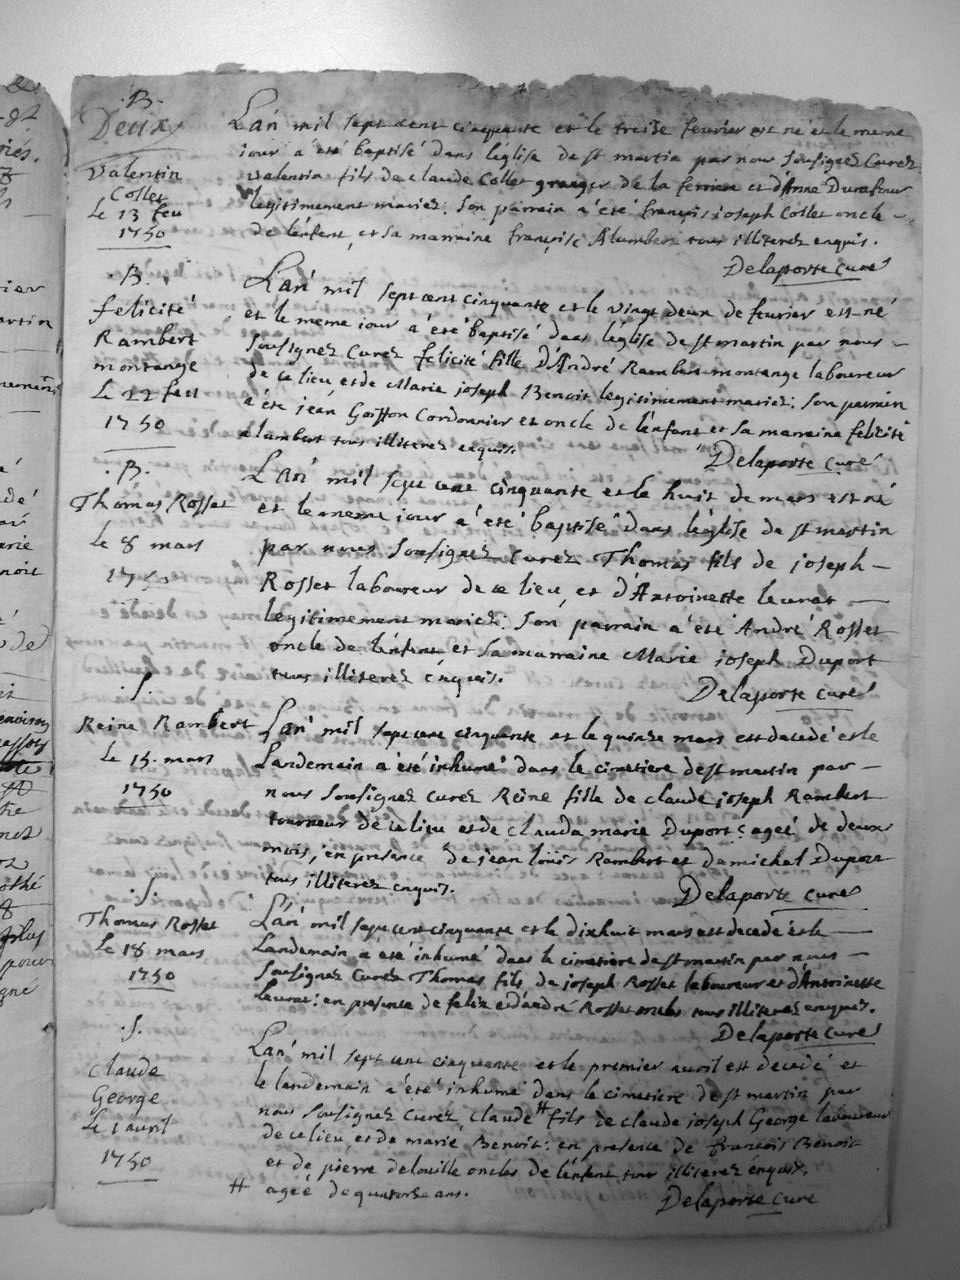 .B.
Deux
Valentin
Collet
Le 13 feu
1750
L'an mil sept cent cinquante et le treise feurier est né et le meme
iour a été baptisé dans l'église de st martin par nous sousignez Curez
Valentin fils de Claude Collet granger de la ferriere et d'Anne Durafour
legitimement mariez. Son parrain a été françois joseph Collet oncle –
de l'enfent, et sa marraine françoise Alumbert tous illiterez enquis.
Delaporte curé
.B.
felicité
Rambert
montange
Le 22 feu
1750
L'an mil sept cent cinquante et le vingt deux de feurier est né
et le meme iour a été baptisé dans l'église de st martin par nous –
sousignez Curez felicité fille D'André Rambert montange laboureur
de ce lieu et de Marie joseph Benoit legitimement mariez: son parrain
a été jean Goiffon Cordonnier et oncle de l'enfent et sa marraine felicité
alumbert tous illiterez enquis.
Delaporte curé
.B.
Thomas Rosset
Le 8 mars
1750
L'an mil sept cent cinquante et le huit de mars est né
et le meme iour a été baptisé dans l'église de st martin
par nous sousignez curez Thomas fils de joseph –
Rosset laboureur de ce lieu, et d'Antoinette leurat –
legitimement mariez: son parrain a été André Rosset
oncle de l'enfent, et sa marraine Marie joseph Duport
tous illiterez enquis.
Delaporte curé
.S.
Reine Rambert
Le 15. mars
1750
L'an mil sept cent cinquante et le quinse mars est decedé et le
Landemain a été inhumé dans le cimetiere de st martin par –
nous sousignez curez Reine fille de claude joseph Rambert
tourneur de ce lieu et de clauda marie Duport: ageé de deux
mois, en presence de jean loüis Rambert et de michel Duport
tous illiterez enquis.
Delaporte curé
.S.
Thomas Rosset
Le 18 mars
1750
L'an mil sept cent cinquante et le dixhuit mars est decedé et le –
Landemain a été inhumé dans le cimetiere de st martin par nous –
sousignez curez Thomas fils de joseph Rosset laboureur et d'Antoinette
leurat: en presence de felix et d'andré Rosset oncles tous illiterez enquis.
Delaporte curé
.S.
Claude
George
Le 1 auril
1750
L'an mil sept cent cinquante et le premier auril est decedé et
le landemain a été inhumé dans le cimetiere de st martin par
nous sousignez curez, Claude # fils de claude joseph George laboureur
de ce lieu, et de marie Benoit: en presence de francois Benoit
et de pierre delouille oncles de l'enfent tous illiterez enquis.
# ageé de quatorse ans.
Delaporte curé